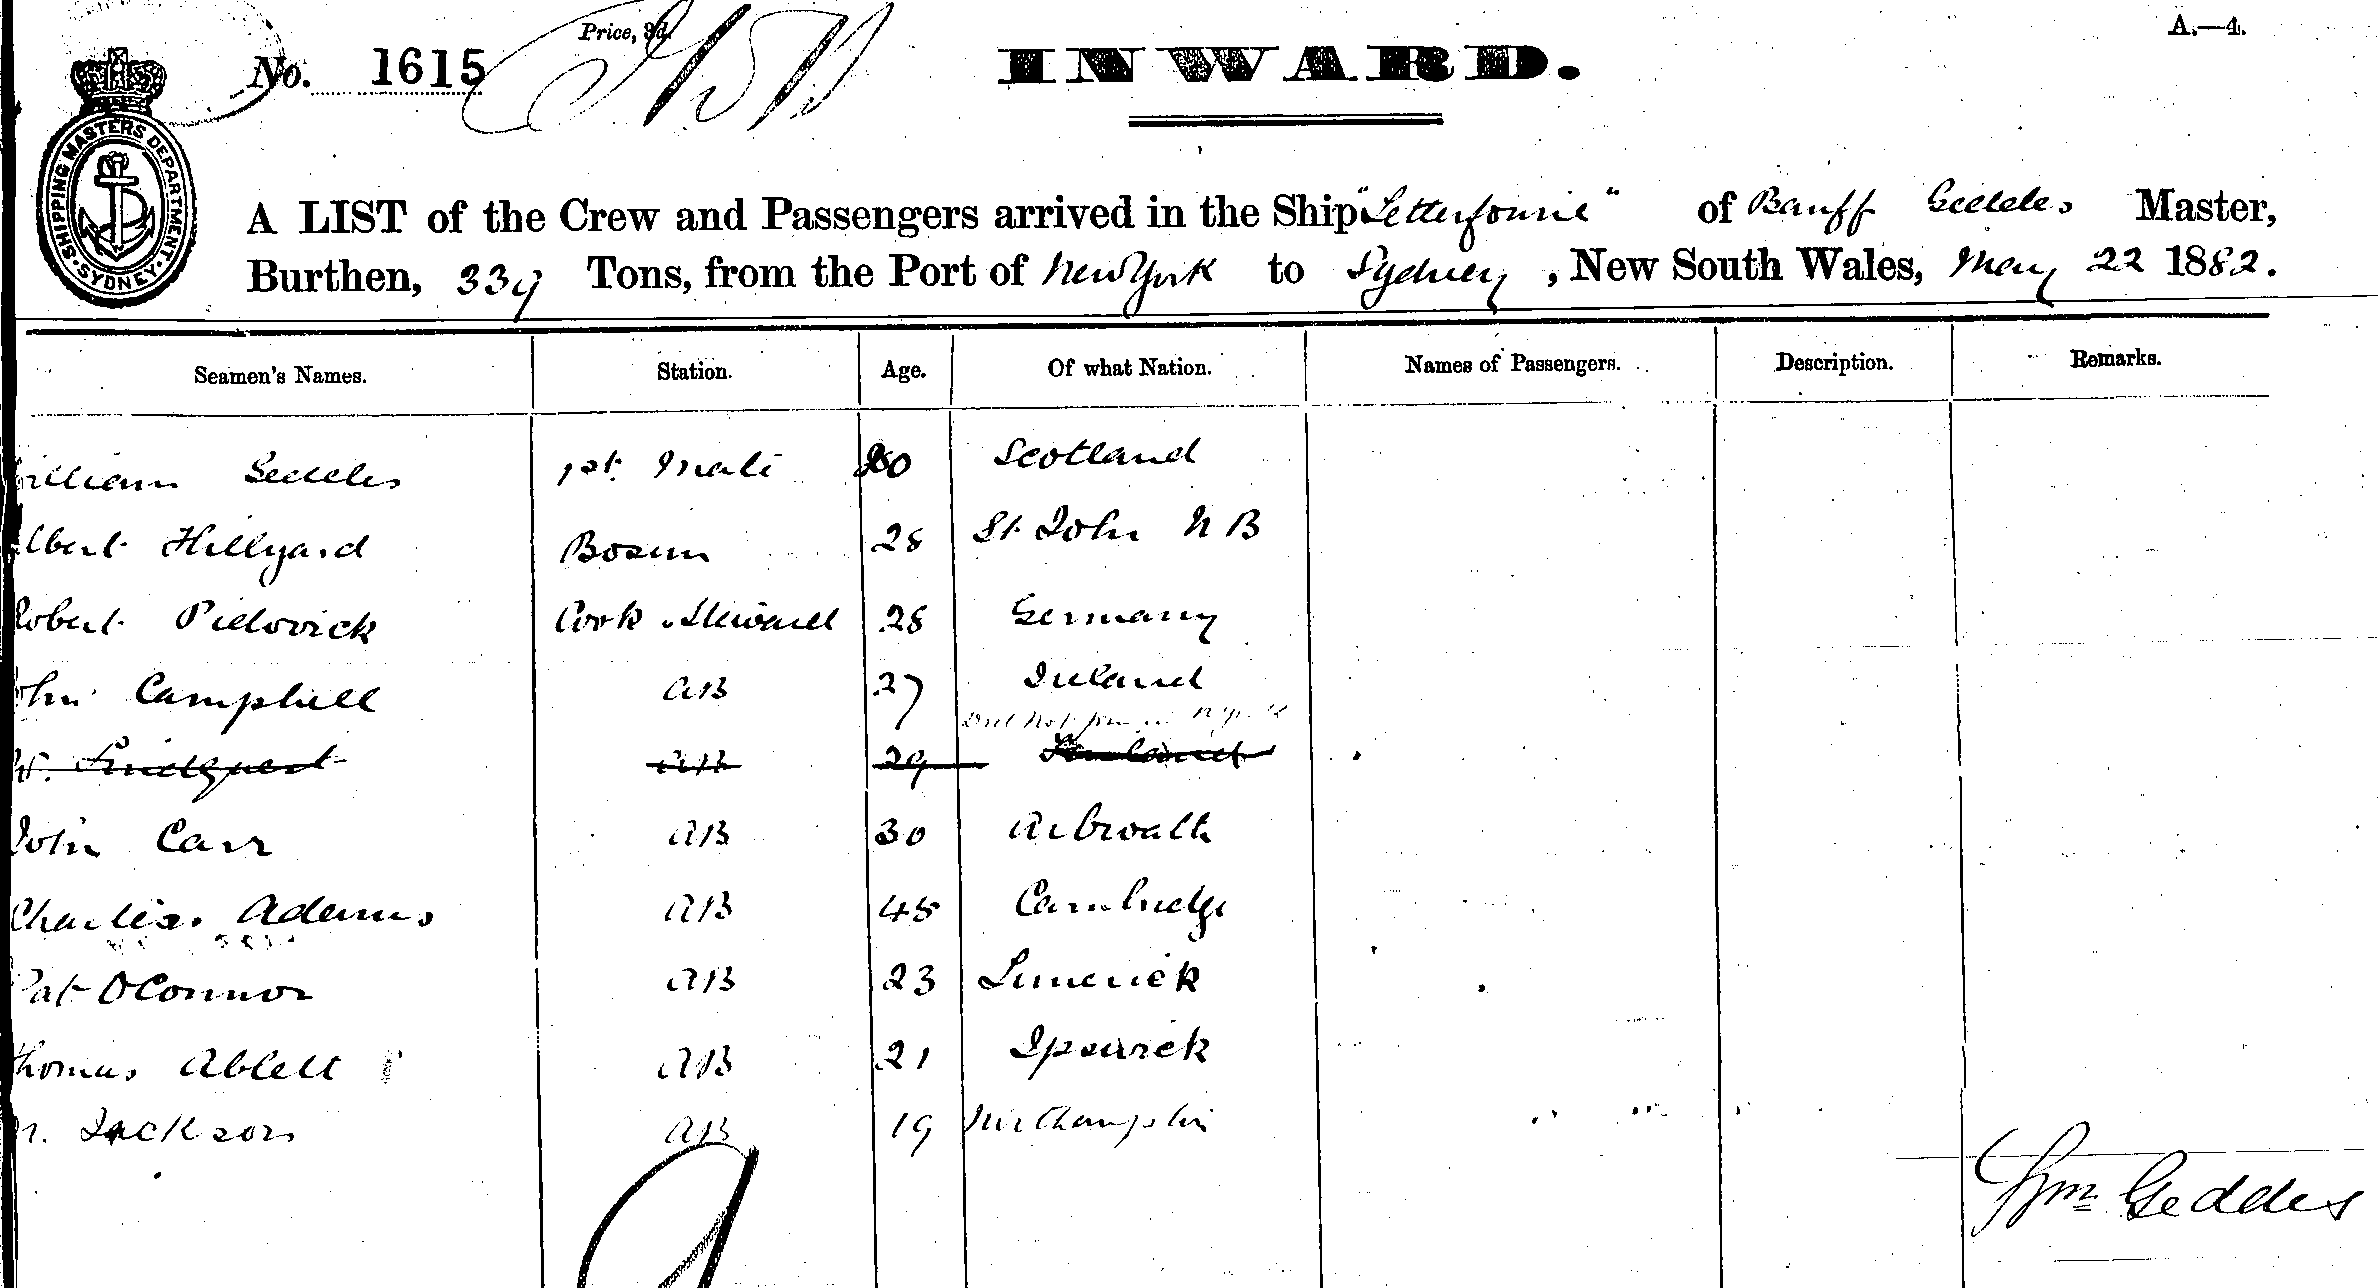 Price, 3d.
A.—4.
No. 1615
INWARD.
SHIPPING MASTERS DEPARTMENT. SYDNEY.
A LIST of the Crew and Passengers arrived in the Ship "Letterfourie" of Banff Geddes Master,
Burthen, 339 Tons, from the Port of New York to Sydney, New South Wales, May 22 1882.
Seamen's Names. Station. Age. Of what Nation. Names of Passengers. Description. Remarks.
illiam Geddes 1st Mate Scotland
lbert Hillyard Bosun 28 St John N B
Robert Pidwick Cook & Steward 28 Germany
ohn Campbell AB 27 Ireland
Did not join
W. Lindquest AB 29
John Carr AB 30 Arbroath
Charles Adams AB 45 Cambridge
Pat OConnor AB 23 Limerick
Thomas Ablett AB 21 Ipswich
Jackson AB 19
Wm Geddes